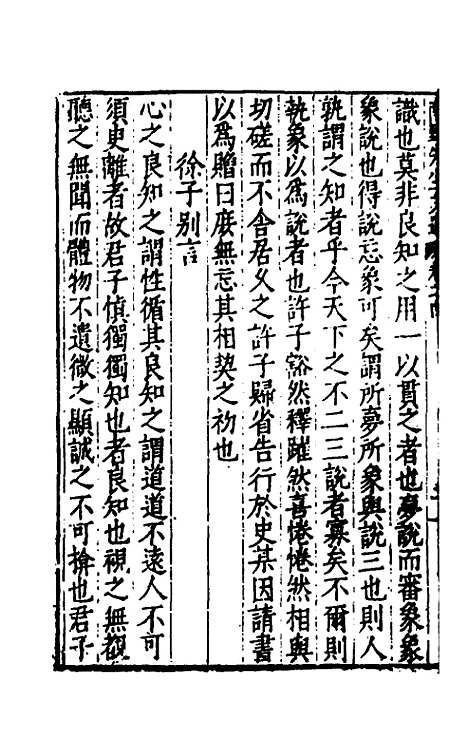 識也莫非良知之用一以貫之者也夢說而審象象
象說也得說忘象可矣謂所夢所象與說三也則人
孰謂之知者乎今天下之不二三說者寡矣不爾則
執象以爲說者也許子豁然釋躍然喜惓惓然相與
切磋而不舍居久之許子歸省告行於史某因請書
以爲贈曰庶無忘其相契之初也
徐子別言
心之良知之謂性循其良知之謂道道不遠人不可
須臾離者故君子慎獨獨知也者良知也視之無觀
聽之無聞而體物不遺微之顯誠之不可揜也君子